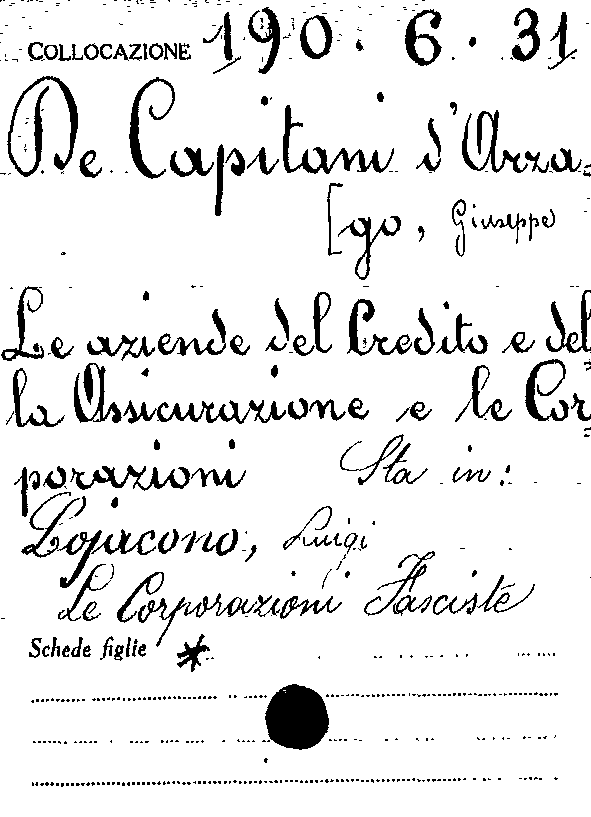 COLLOCAZIONE 190.6.31
De Capitani d'Arza=
[go, Giuseppe
Le aziende del Credito e del=
la Assicurazione e le Cor=
porazioni Sta in:
Lojacono, Luigi
Le Corporazioni Fasciste
Schede figlie *